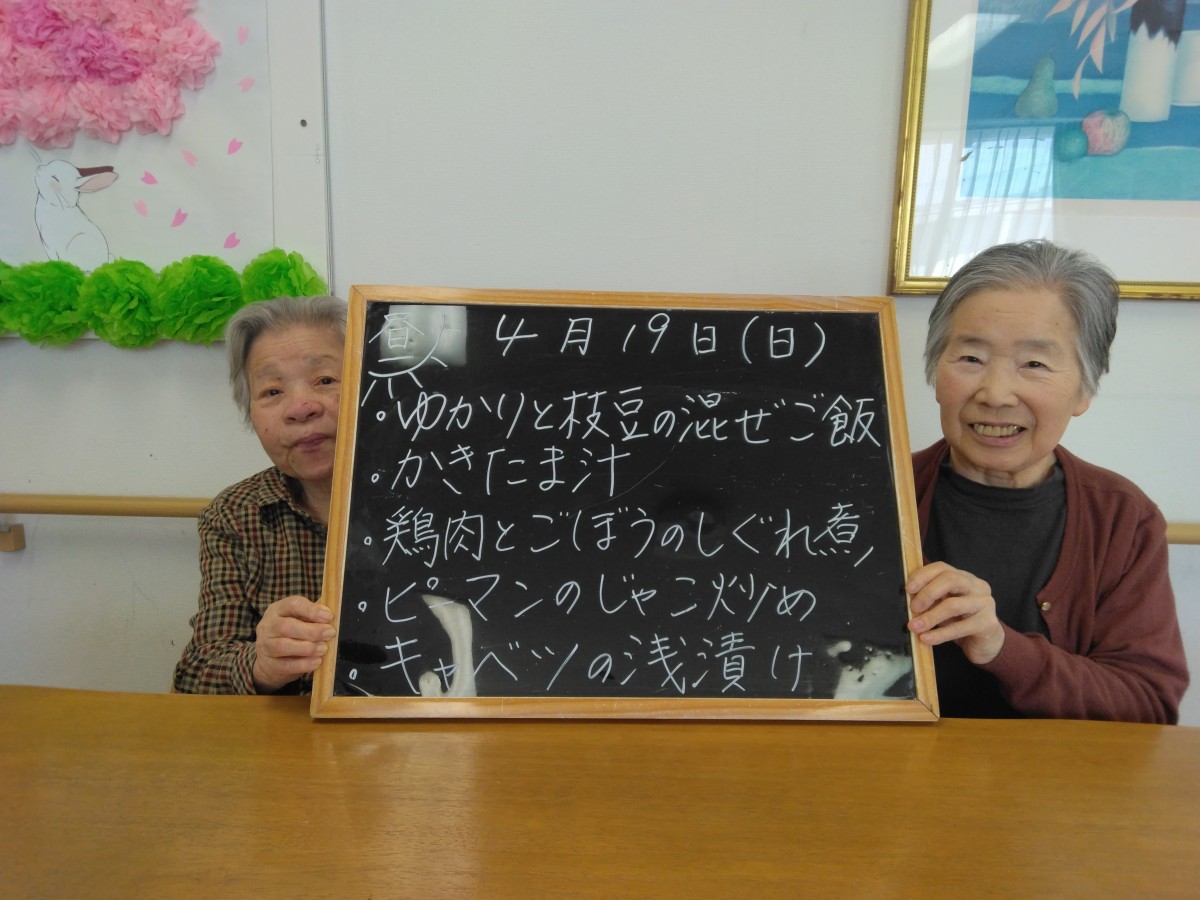 昼 4月19日(日)
・ゆかりと枝豆の混ぜご飯
・かきたま汁
・鶏肉とごぼうのしぐれ煮
・ピーマンのじゃこ炒め
・キャベツの浅漬け